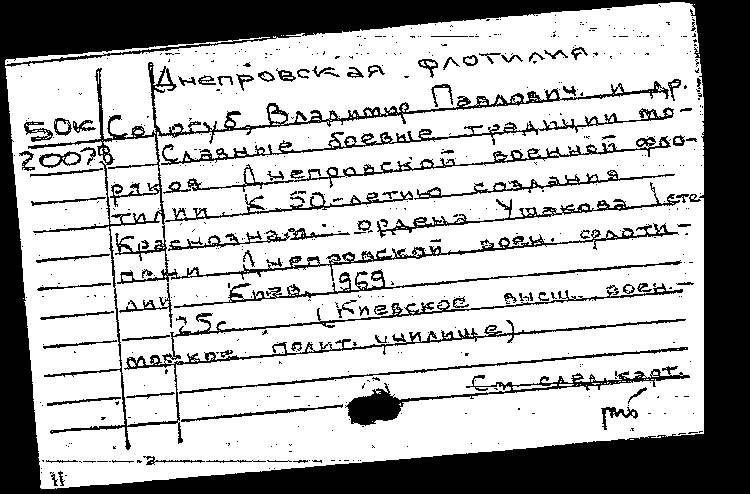 Днепровская флотилия.
50к Сологуб, Владимир Павлович. и др.
20078 Славные боевые традиции мо-
ряков Днепровской военной фло-
тилии. К 50-летию создания
Краснознам. ордена Ушакова I сте-
пени Днепровской воен. флоти-
лии. Киев, 1969.
25с (Киевское высш. воен.-
морское полит. училище).
См. след. карт.